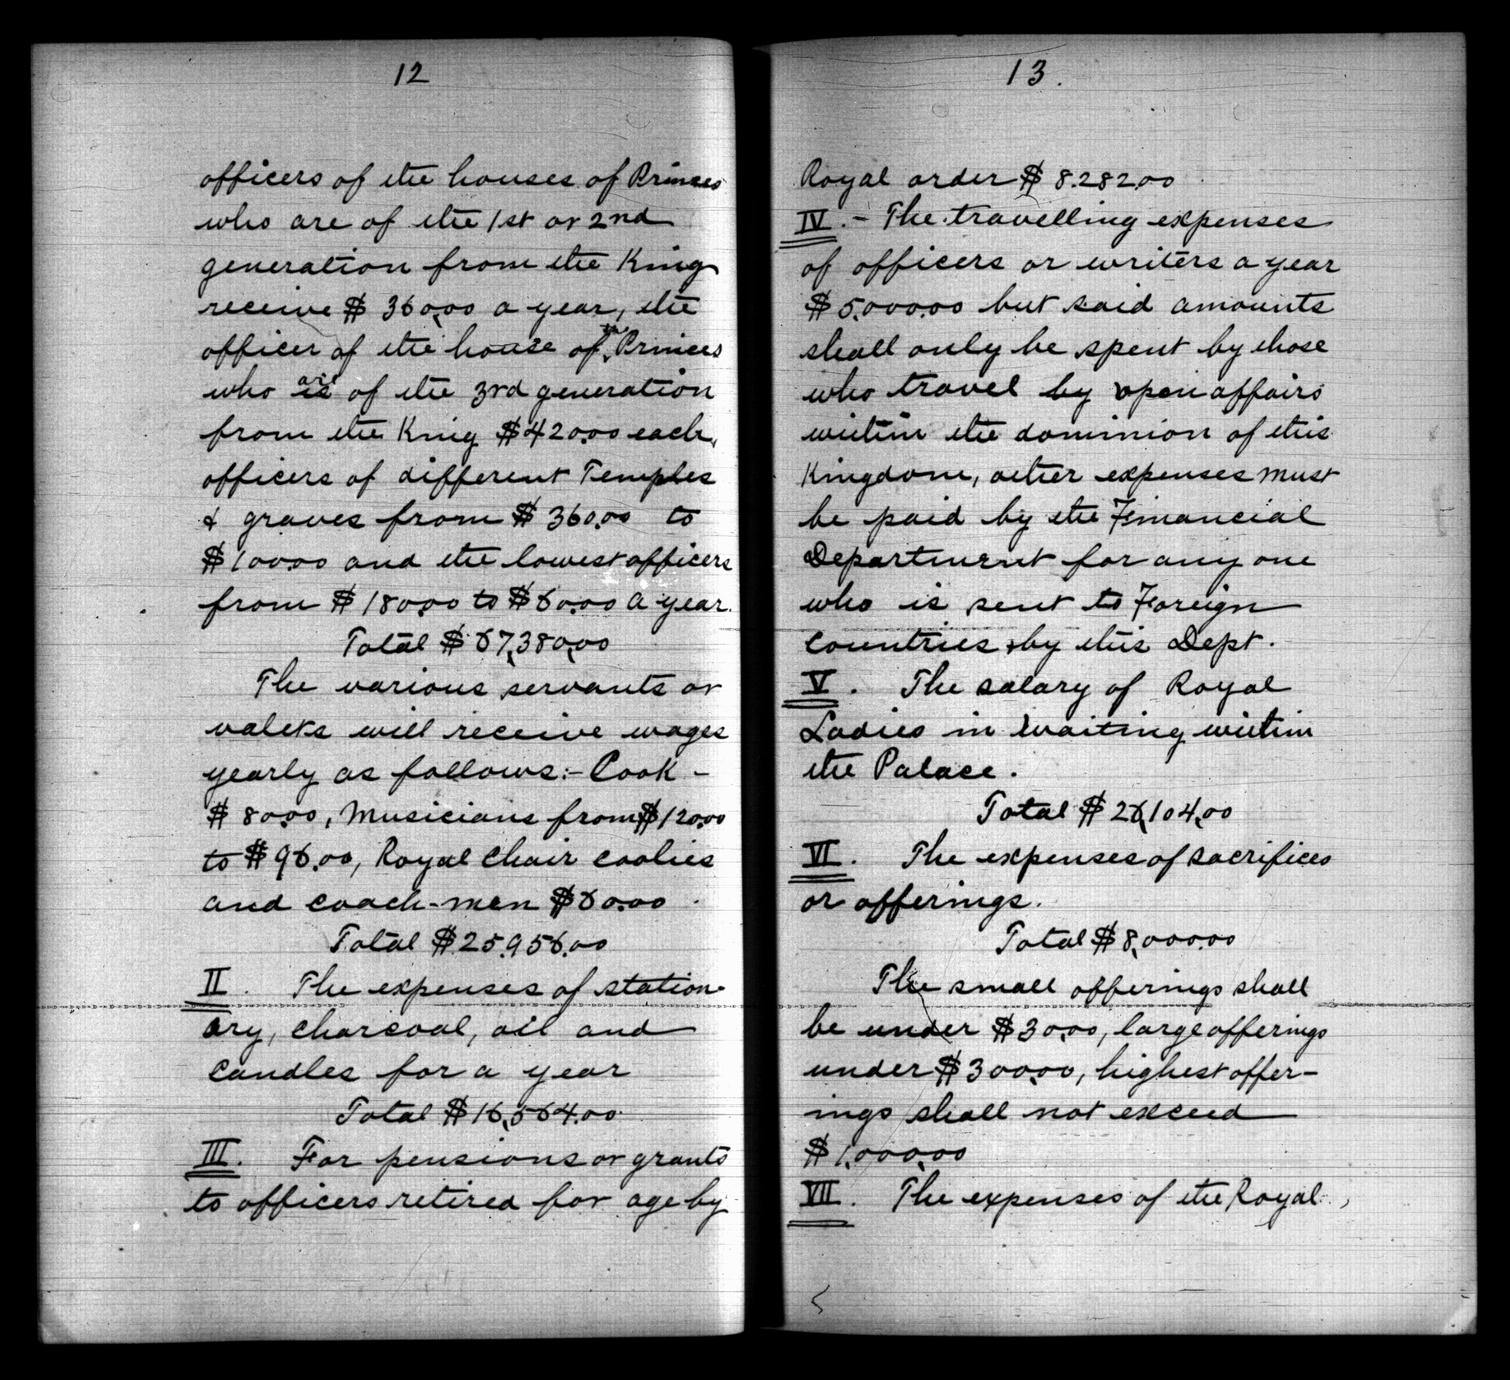 12
officers of the houses of Princes
who are of the 1st or 2nd
generation from the King
receive $ 360.00 a year, the
officer of the house of the Princes
who are of the 3rd generation
from the King $420.00 each,
officers of different Temples
& graves from $ 360.00 to
$100.00 and the lowest officers
from $ 180.00 to $60.00 a year.
Total $ 67,380.00
The various servants or
valets will receive wages
yearly as follows:- Cook -
$ 80.00, Musicians from $120.00
to $96.00, Royal Chair coolies
and coach-men $60.00
Total $25,956.00
II. The expenses of station-
ary, charcoal, oil and
candles for a year
Total $16,564.00
III. For pensions or grants
to officers retired for age by
13.
Royal order $ 8.282.00
IV. - The travelling expenses
of officers or writers a year
$5,000.00 but said amounts
shall only be spent by those
who travel by upon affairs
within the dominion of this
Kingdom, other expenses must
be paid by the Financial
Department for any one
who is sent to Foreign
countries by this Dept.
V. The salary of Royal
Ladies in Waiting within
the Palace.
Total $ 26,104.00
VI. The expenses of sacrifices
or offerings.
Total $8,000.00
The small offerings shall
be under $30.00, large offerings
under $300.00, highest offer-
ings shall not exceed
$1,000.00
VII. The expenses of the Royal